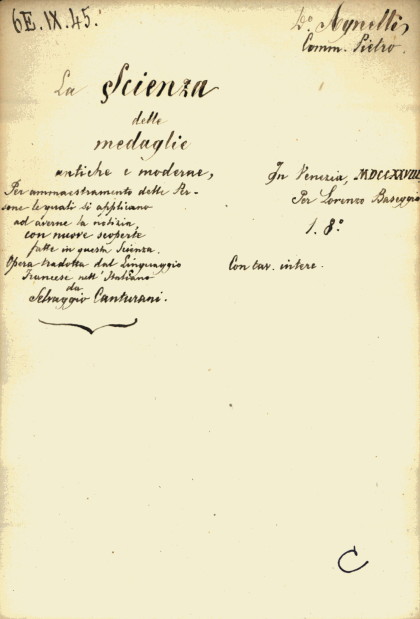 6E.IX.45.
Do. Agnelli
Comm. Pietro.
La Scienza
delle
medaglie
antiche e moderne,
Per ammaestramento delle Per-
sone le quali si applicano
ad averne la notizia,
con nuove scoperte
fatte in questa Scienza.
Opera tradotta dal Linguaggio
Francese nell'Italiano
da
Selvaggio Canturani.
In Venezia, MDCCXXVIII
Per Lorenzo Baseggio
1. 8.º
Con tav. intere.
C